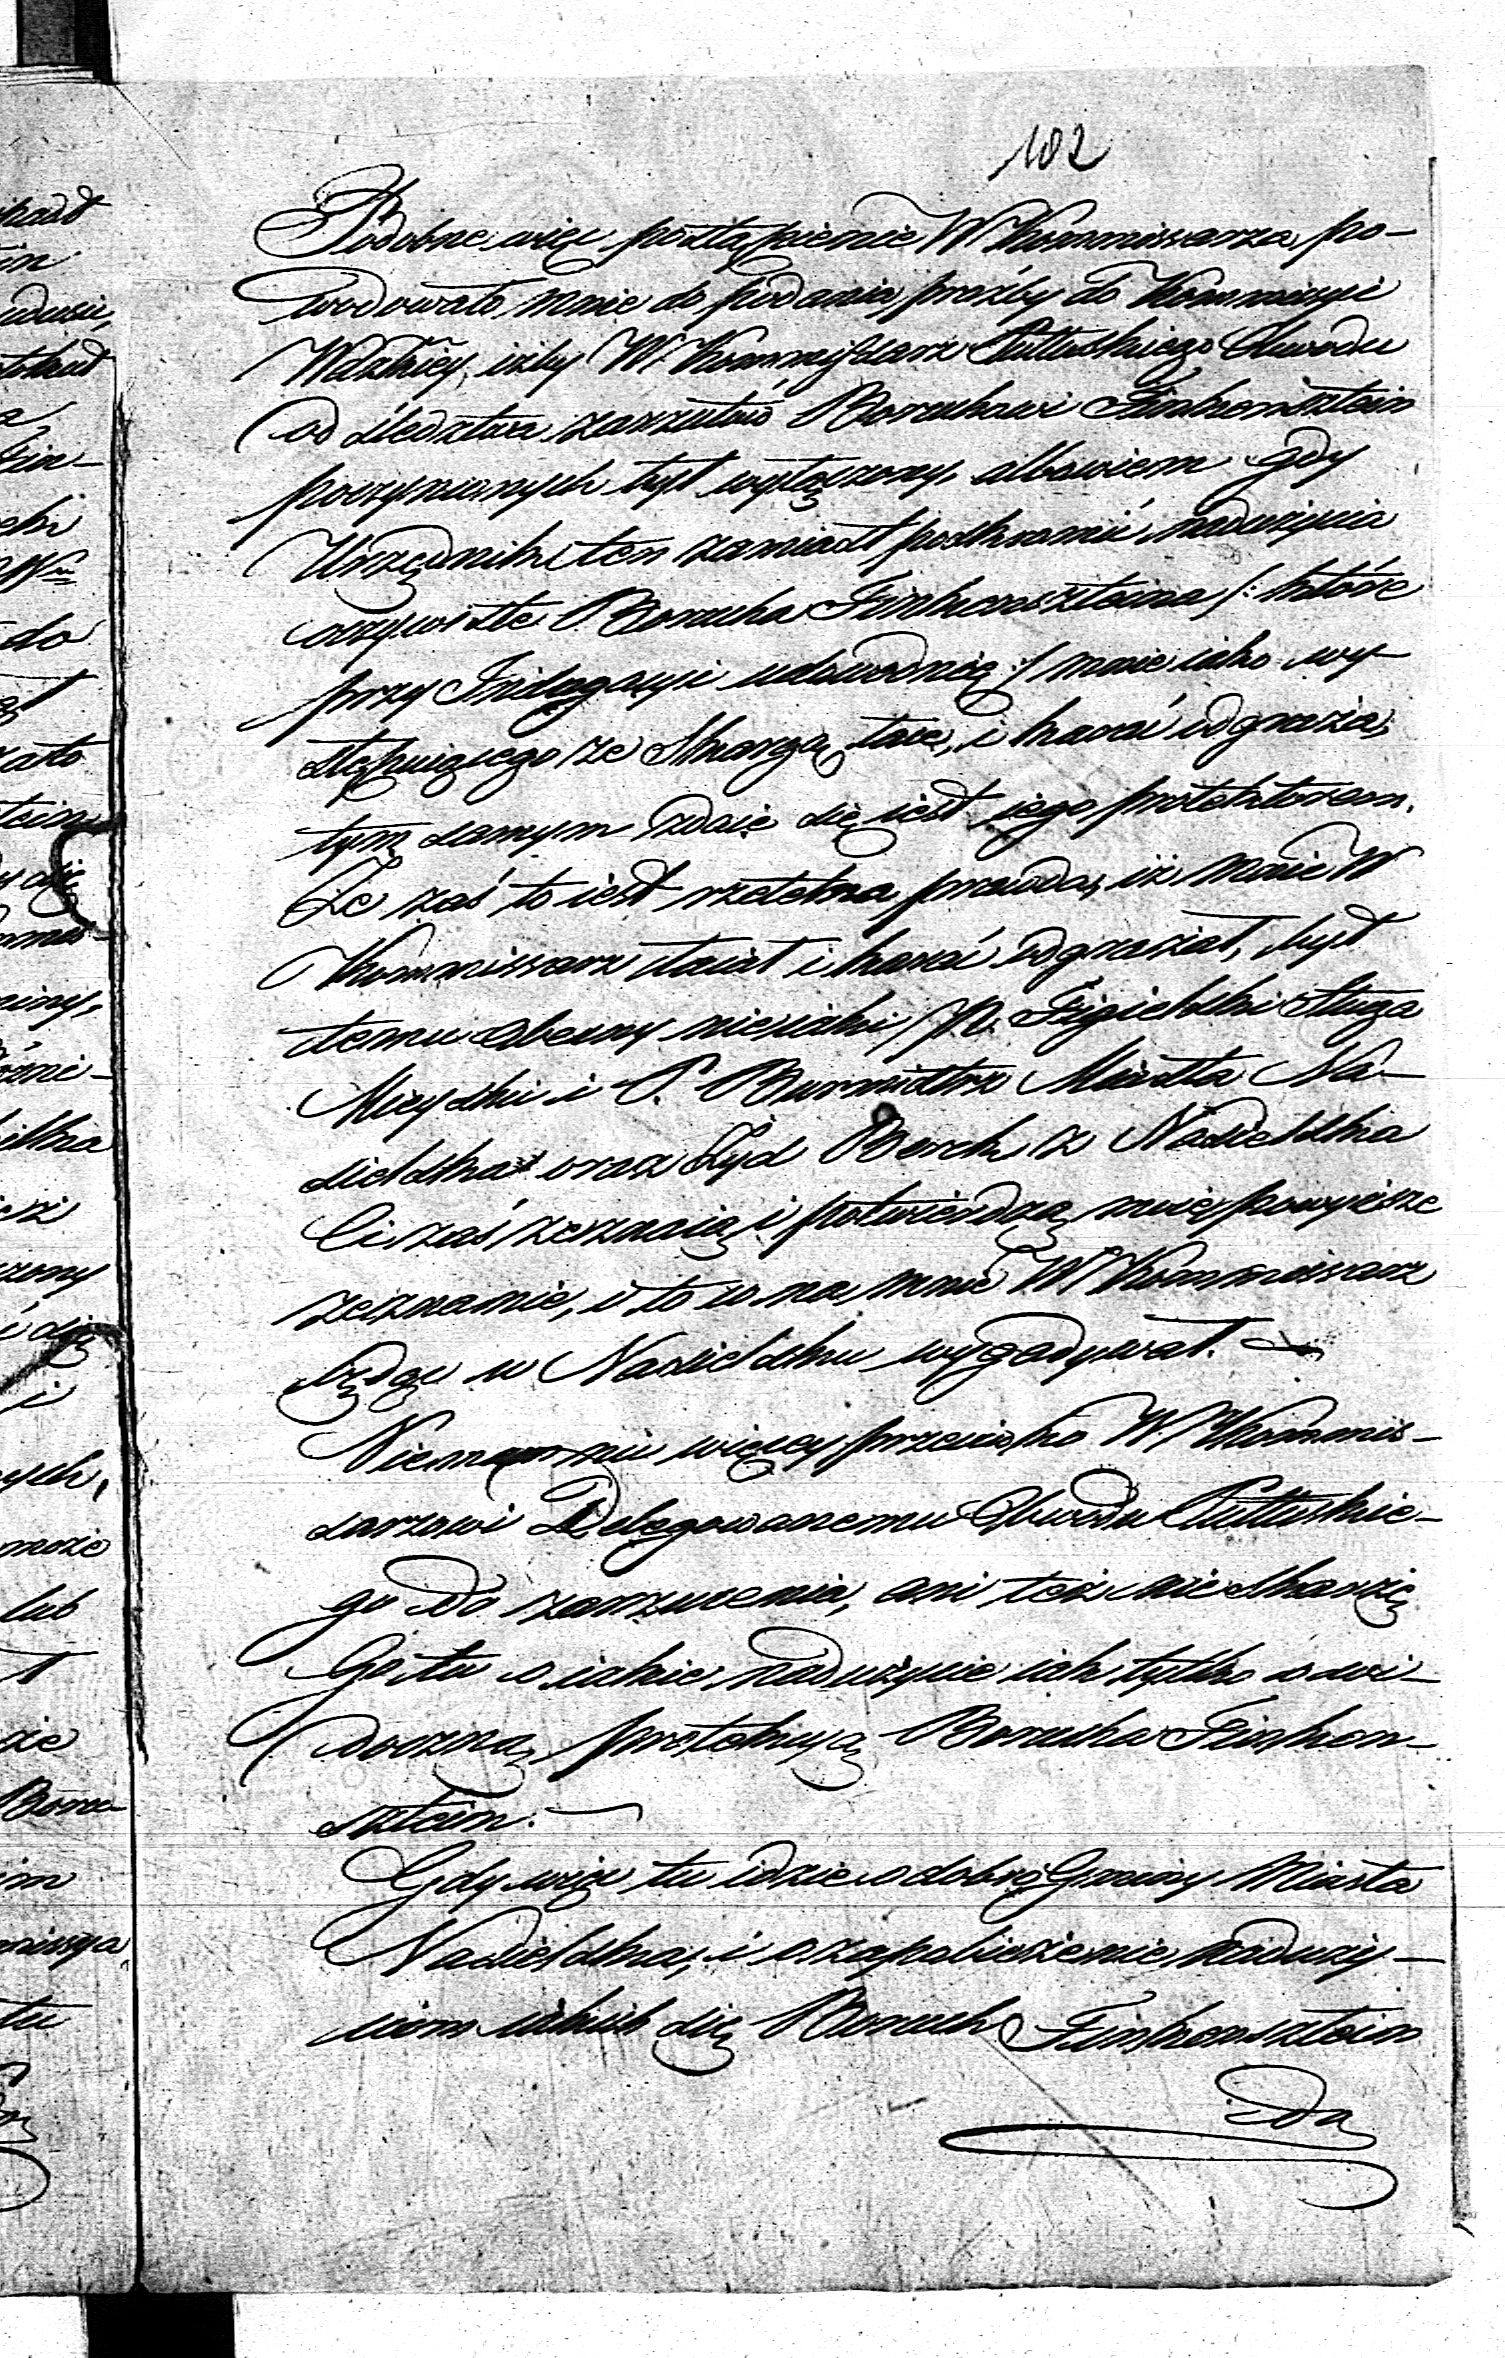 102
Podobne więc postąpienie W Kommissarza po-
wodowało mnie do podania proźby do Kommissyi
Wdzkiey, iżby W. Kommissarz Pułtuskiego Obwodu
od śledztwa zarzutów Boruchowi Finkensztein
poczynionych był wyłączony, albowiem gdy
Urzędnik ten zamiast poskromić nadużycia
oczywiste Borucha Finkenszteina /: które
przy Indagacyi udowodnię :/ mnie iako wy-
stępuiącego ze Skargą łaie, i karać odgraża,
tym samym zdaie się iest iego protektorem.
Że zaś to iest rzetelna prawda, iż mnie W
Kommissarz łaiał i karać odgrażał, był
temu obecny nieiaki P. Figielski Sługa
Mieyski i P. Burmistrz Miasta Na-
sielska oraz Żyd Berek z Nasielska
Ci zaś zeznaią i potwierdzą moie powyższe
zeznanie, i to co na mnie W Kommissarz
będąc w Nasielsku wygadywał.
Niemam nic więcey przeciwko W. Kommis-
sarzowi Delegowanemu Obwodu Pułtuskie-
go do zarzucenia, ani też nie skarżę
Go tu o iakie nadużycie iak tylko o wi-
doczną protekcyą Borucha Finken-
sztein.
Gdy więc tu idzie o dobro Gminy Miasta
Nasielska, i o zapobieżenie naduży-
ciom iakich się Boruch Finkensztein
do